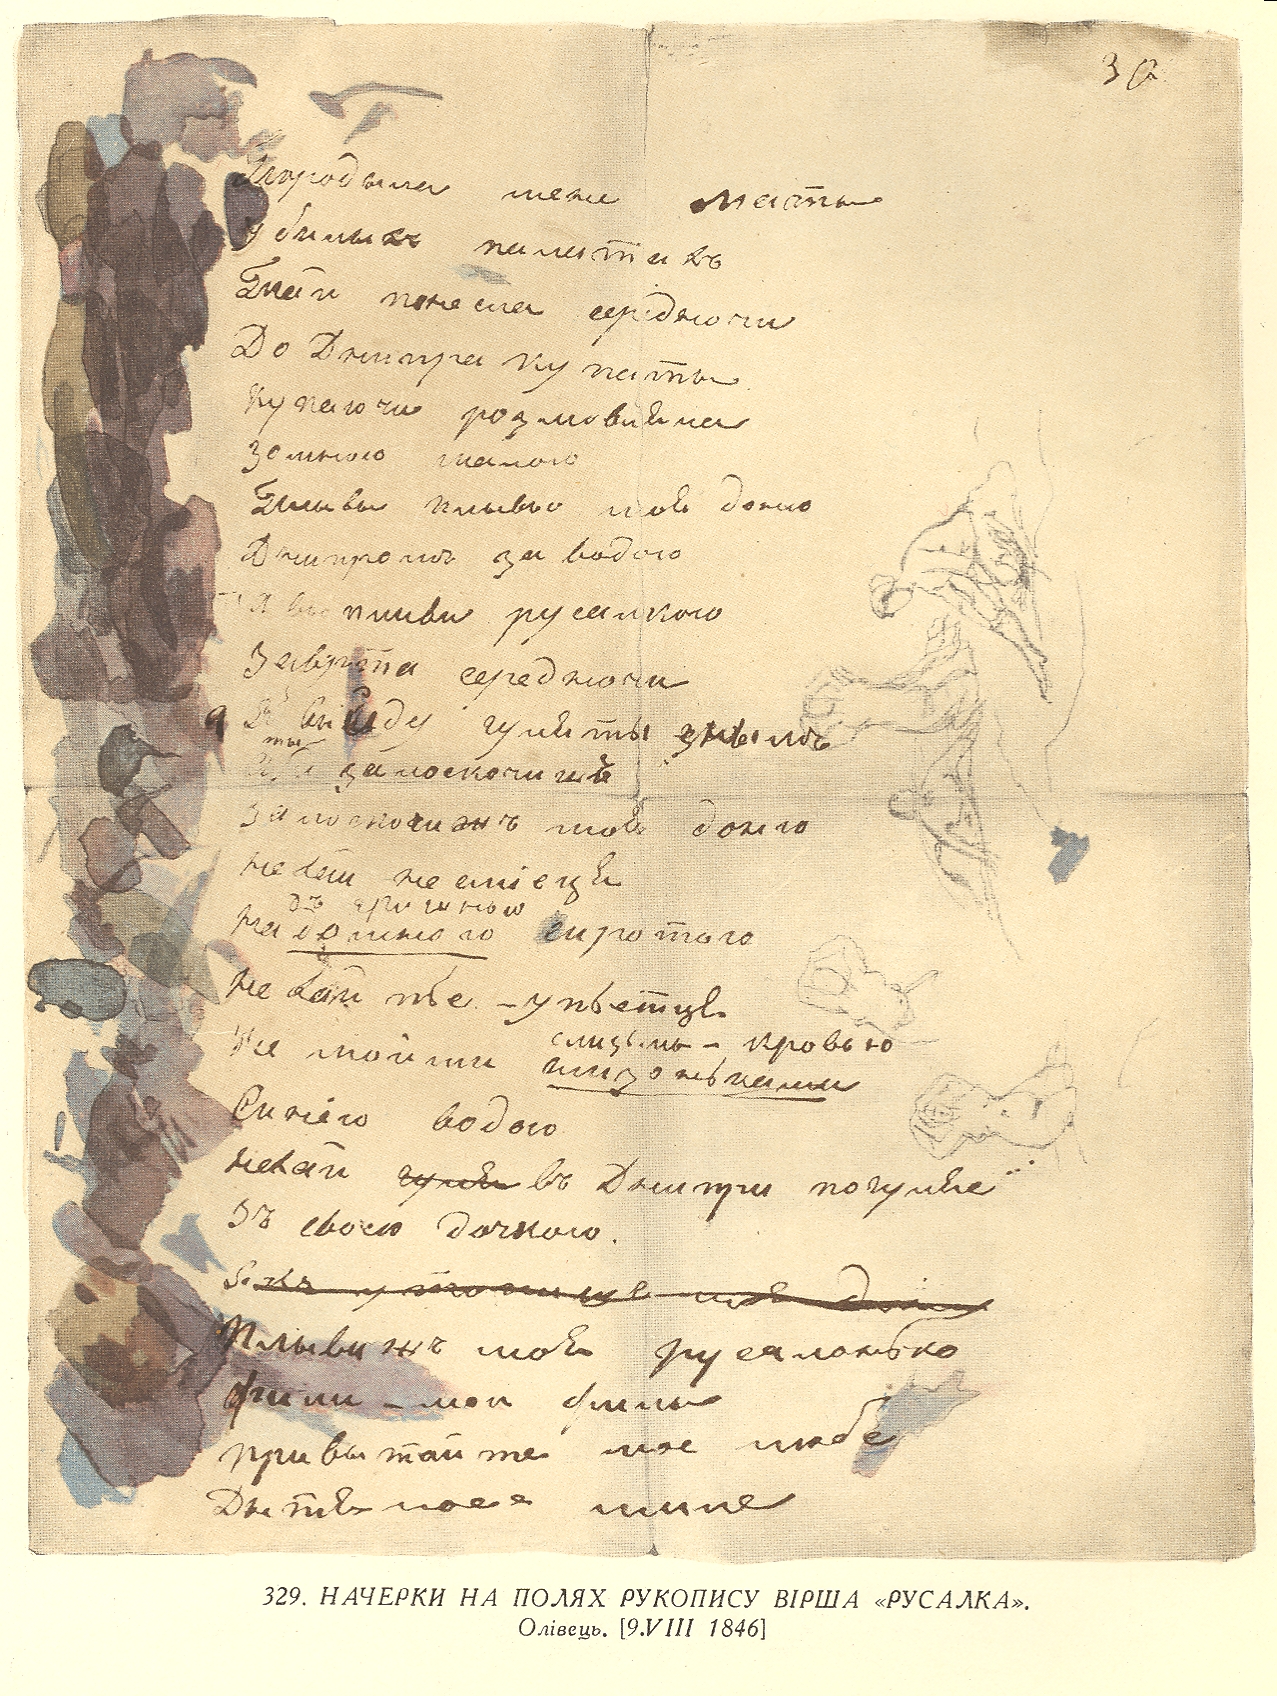 30
Породыла мене маты
У билыхъ палатахъ
Тай понесла середночи
До Днипра купаты
Купаючи розмовляла
Зомною малою
Плывы плывы моя доню
Днипромъ за водою
плыви русалкою
Завтра середночи
Я выйду гуляты знымъ
ты
залоскочишъ
Залоскочижъ моя доню
Нехай не сміеця
дъ
Надомною сиротою
Нехай пье – упьетця
Не моіми слизьмы – кровью
слизонькамы
Синею водою
Нехай гуля въ Днипри погуляе
Зъ своею дочкою.
у моя доню
Плывижъ моя русалонько
фыли – мои фыли
Прывытайте мое любе
Дытя мое мыле
329. НАЧЕРКИ НА ПОЛЯХ РУКОПИСУ ВІРША «РУСАЛКА».
Олівець. [9.VIII 1846]